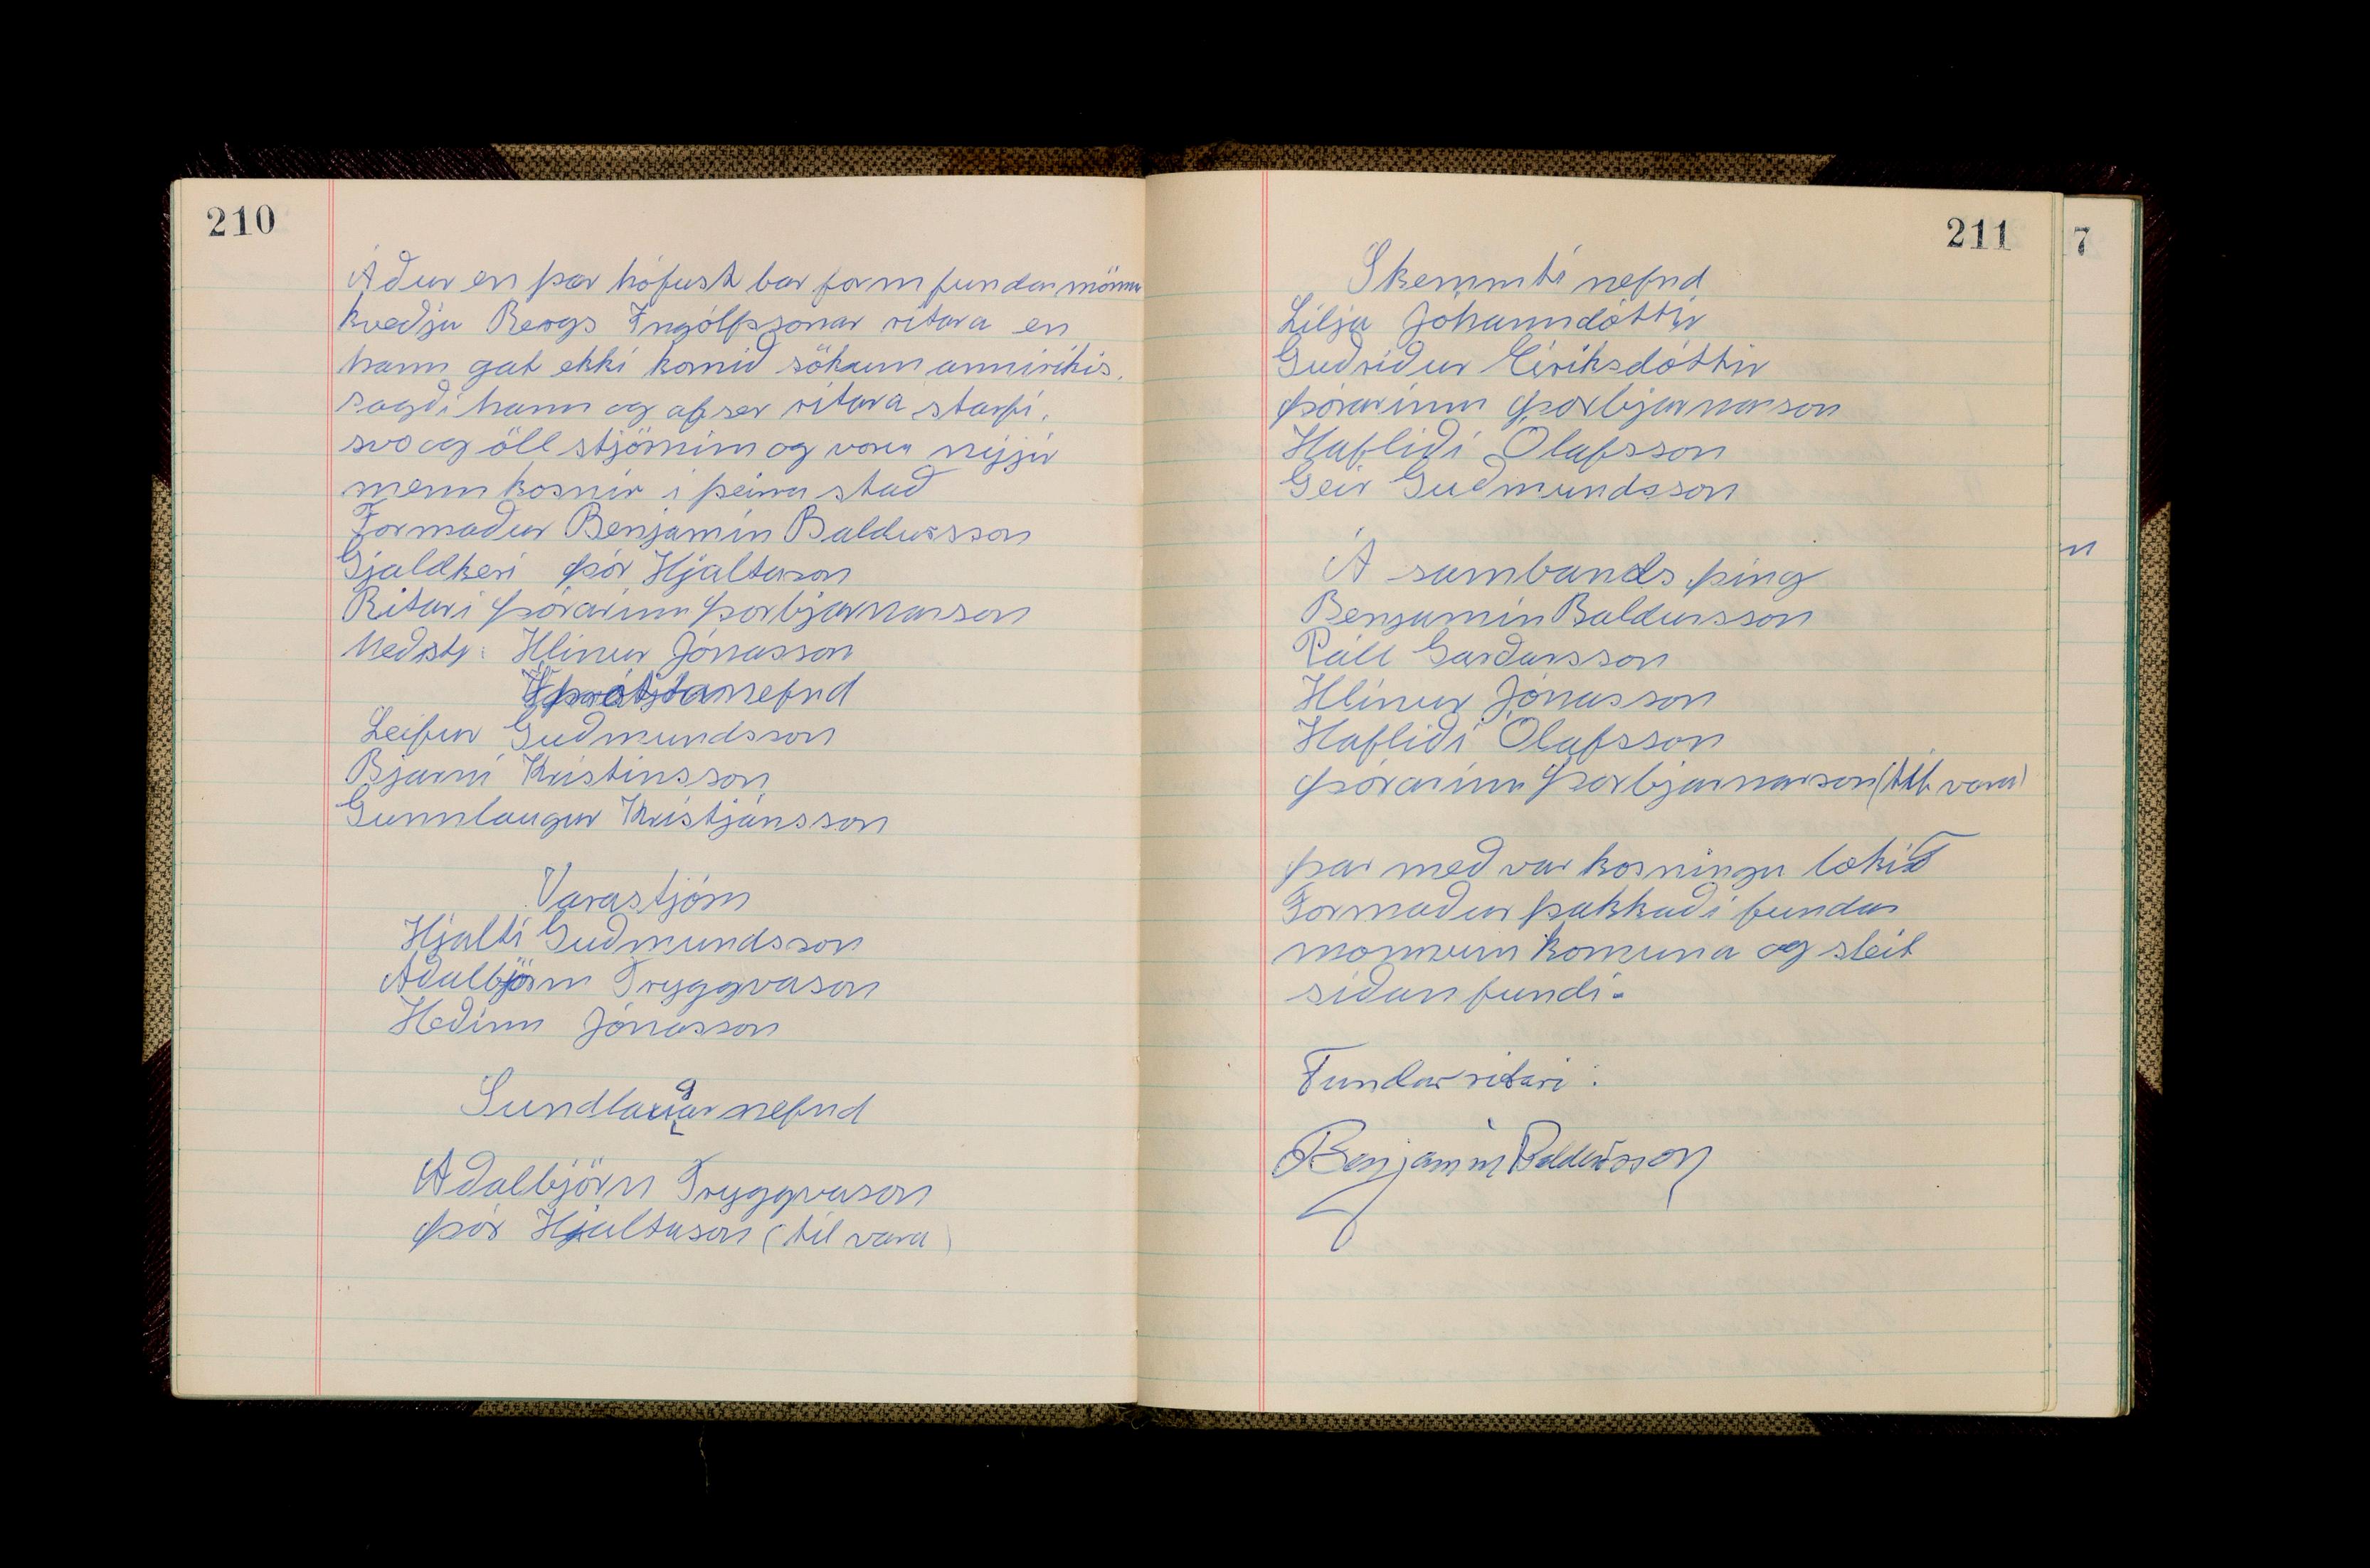 210
Áður en þær hófust bar form fundarmönnum
kveðju Bergs Ingólfssonar ritara en
hann gat ekki komið sökum annríkis.
sagði hann og af ser ritara starfi.
svo og öll stjórnin og voru nyjir
menn kosnir i þeirra stað
Formaður Benjamín Baldursson
Gjaldkeri Þór Hjaltason
Ritari Þórarinn Þorbjarnarson
Meðstj: Hlinur Jónasson
Íþróttanefnd
Leifur Guðmundsson
Bjarni Kristinsson
Gunnlaugur Kristjánsson
Varastjórn
Hjalti Guðmundsson
Aðalbjörn Tryggvason
Héðinn Jónasson
Sundlaugarnefnd
Aðalbjörn Tryggvason
Þór Hjaltason (til vara)
211
Skemmti nefnd
Lilja Jóhanndóttir
Guðriður Eiriksdóttir
Þórarinn Þorbjarnarson
Hafliði Ólafsson
Geir Guðmundsson
Á sambands þing
Benjamín Baldursson
Páll Garðarsson
Hlinur Jónasson
Hafliði Ólafsson
Þórarinn Þorbjarnarson (til vara)
þar með var kosningu lokið
Formaður þakkaði fundar
monnum komuna og sleit
síðan fundi.
Fundar ritari:
Benjamín Baldursson
7
n